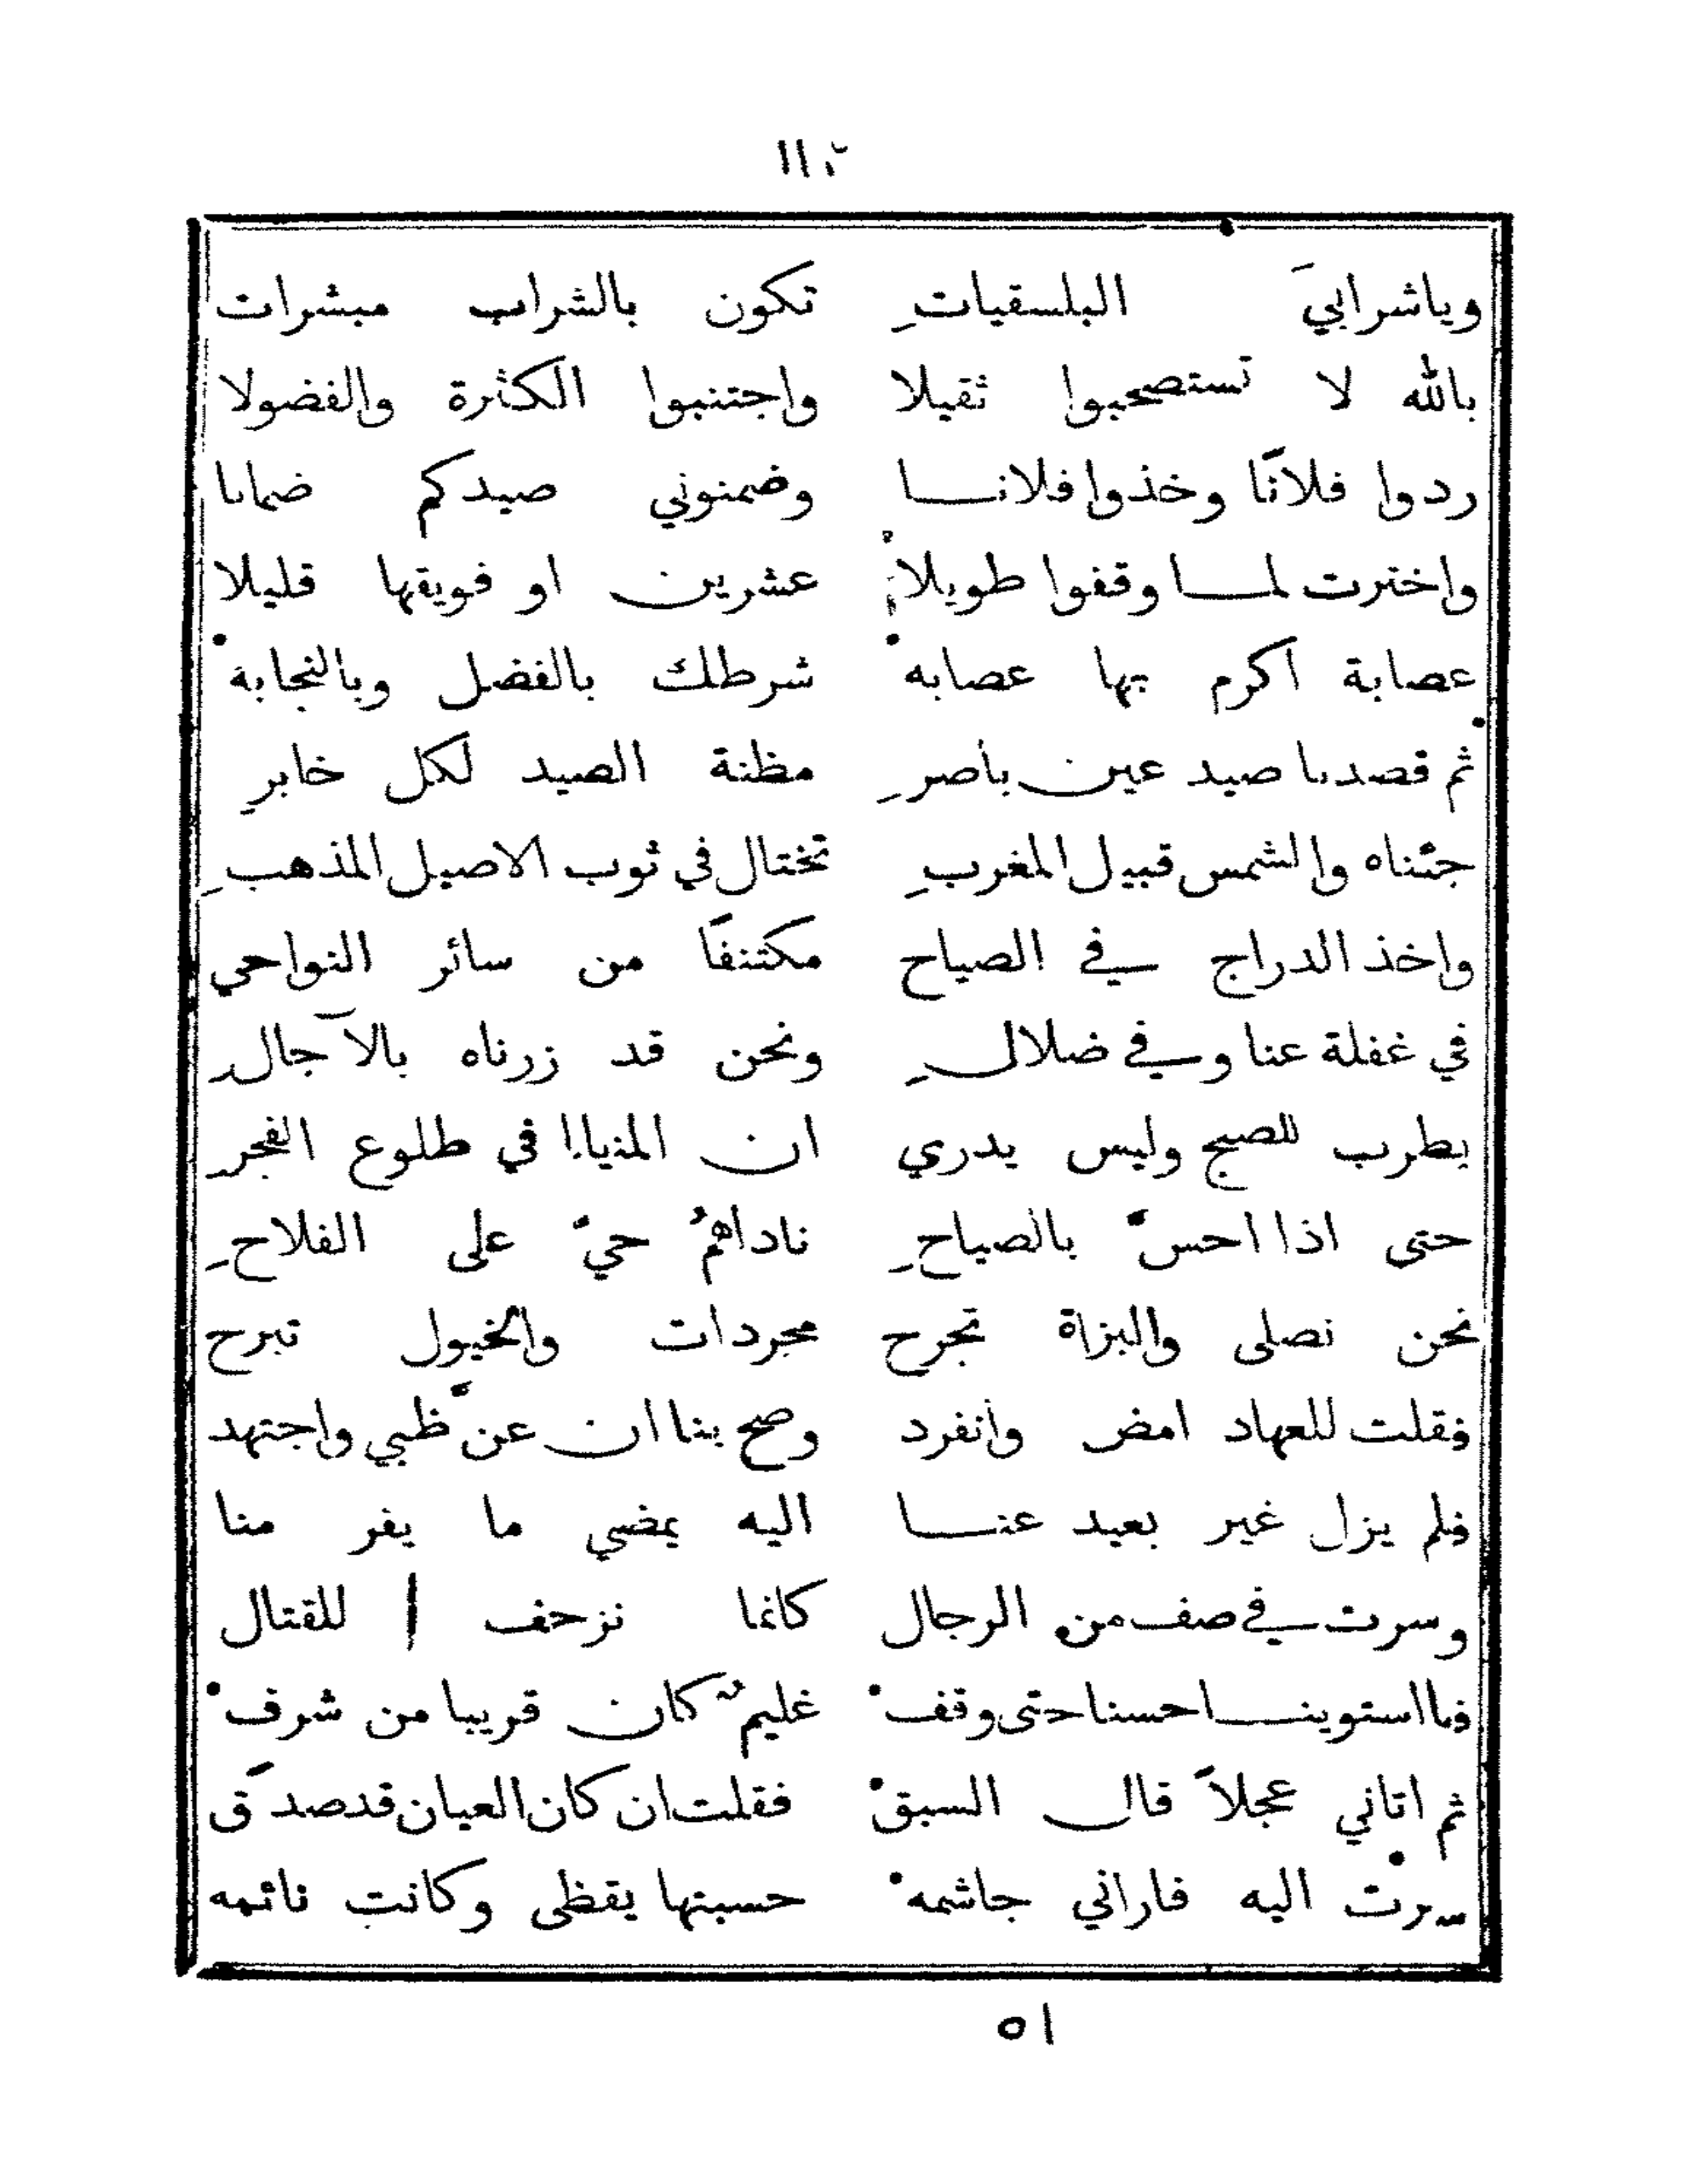 وياشرابيَ البلسقياتِ تكون بالشراب مبشرات
بالله لا تستصحبوا ثقيلا واجتنبوا الكثرة والفضولا
ردوا فلانًا وخذوا فلانا وضمنوني صيدكم ضمانا
واخترت لما وقفوا طويلا عشرين او فويقها قليلا
عصابة اكرم بها عصابهْ شرطك بالفضل وبالنجابهْ
ثم قصدنا صيد عين باصرِ مظنة الصيد لكل خابرِ
جئناه والشمس قبيل المغربِ تختال في ثوب الاصيل المذهبِ
واخذ الدراج في الصياح مكتنفًا من سائر النواحي
في غفلة عنا وفي ضلالِ ونحن قد زرناه بالآجالِ
يطرب للصبح وليس يدري ان المنايا في طلوع الفجرِ
حتى اذا احسّ بالصياحِ ناداهمُ حيّ على الفلاحِ
نحن نصلى والبزاة تجرح مجردات والخيول تبرح
فقلت للعهاد امض وانفرد وصح بنا ان عنّ ظبي واجتهد
فلم يزل غير بعيد عنا اليه يمضي ما يفر منا
وسرت في صف من الرجال كانما نزحف للقتال
فما استوينا احسنا حتى وقفْ غليمٌ كان قريبا من شرفْ
ثم اتاني عجلاً قال السبقْ فقلت ان كان العيان قد صدَق
سرت اليه فاراني جاشمهْ حسبتها يقظى وكانت نائمه
٥١